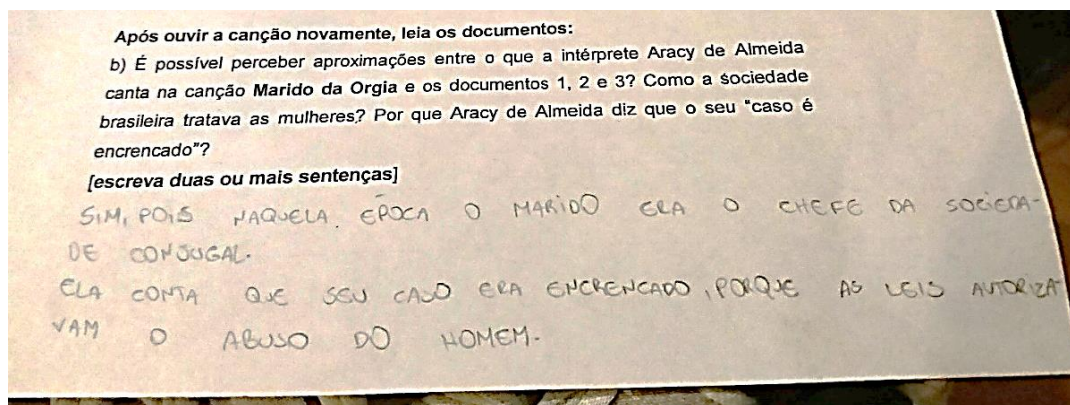 Após ouvir a canção novamente, leia os documentos:
b) É possível perceber aproximações entre o que a intérprete Aracy de Almeida
canta na canção Marido da Orgia e os documentos 1, 2 e 3? Como a sociedade
brasileira tratava as mulheres? Por que Aracy de Almeida diz que o seu "caso é
encrencado"?
[escreva duas ou mais sentenças]
SIM, POIS NAQUELA EPOCA O MARIDO ERA O CHEFE DA SOCIEDA-
DE CONJUGAL.
ELA CONTA QUE SEU CASO ERA ENCRENCADO, PORQUE AS LEIS AUTORIZA-
VAM O ABUSO DO HOMEM.